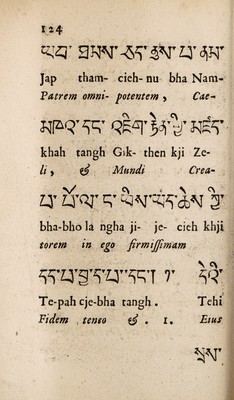 124
ཡབ་ ཐམས་ ཅད་ ནུས་ པ་ ནམ་
Jap tham- cieh- nu bha Nam-
Patrem omni- potentem, Cae-
མཁའ་ དང་ འཇིག་ རྟེན་ གྱི་ མཛད་
khah tangh Gik- then kji Ze-
li, & Mundi Crea-
པ་ པོ་ ལ་ ང་ ཡིས་ ཡིད་ ཆེས་ ཀྱི་
bha-bho la ngha ji- je- cieh khji
torem in ego firmissimam
དད་པ་བྱེད་པ་དང་། ༡ དེའི་
Te-pah cje-bha tangh. Tehi
Fidem teneo &. 1. Eius
སྲས་